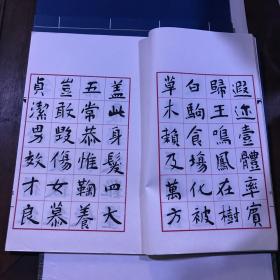 遐迩壹體率賓
歸王鳴鳳在樹
白駒食場化被
草木賴及萬方
蓋此身髮四大
五常恭惟鞠養
豈敢毀傷女慕
貞潔男效才良